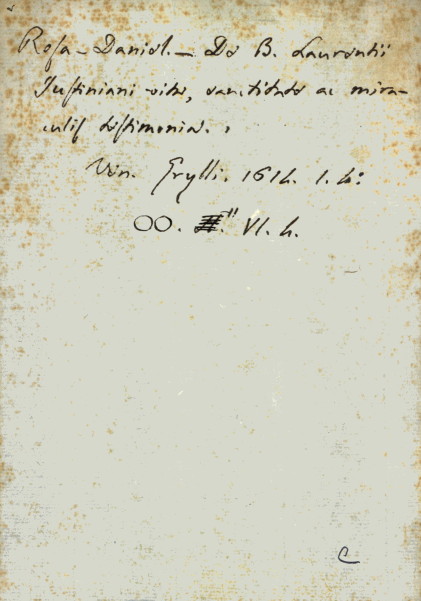 Rosa - Daniel. - De B. Laurentii
Justiniani vita, sanctitate ac mira-
culis testimonia.
Ven. Grylli. 1614. 1. 4:
OO. VI. 4.
C